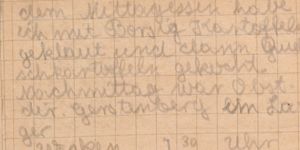 dem Mittagessen habe
ich mit Kartoffeln
geklaut und dann
schkartoffeln gekocht.
Nachmittag war Obst
dir. Gerstenberg im La
ger.
7 30 Uhr